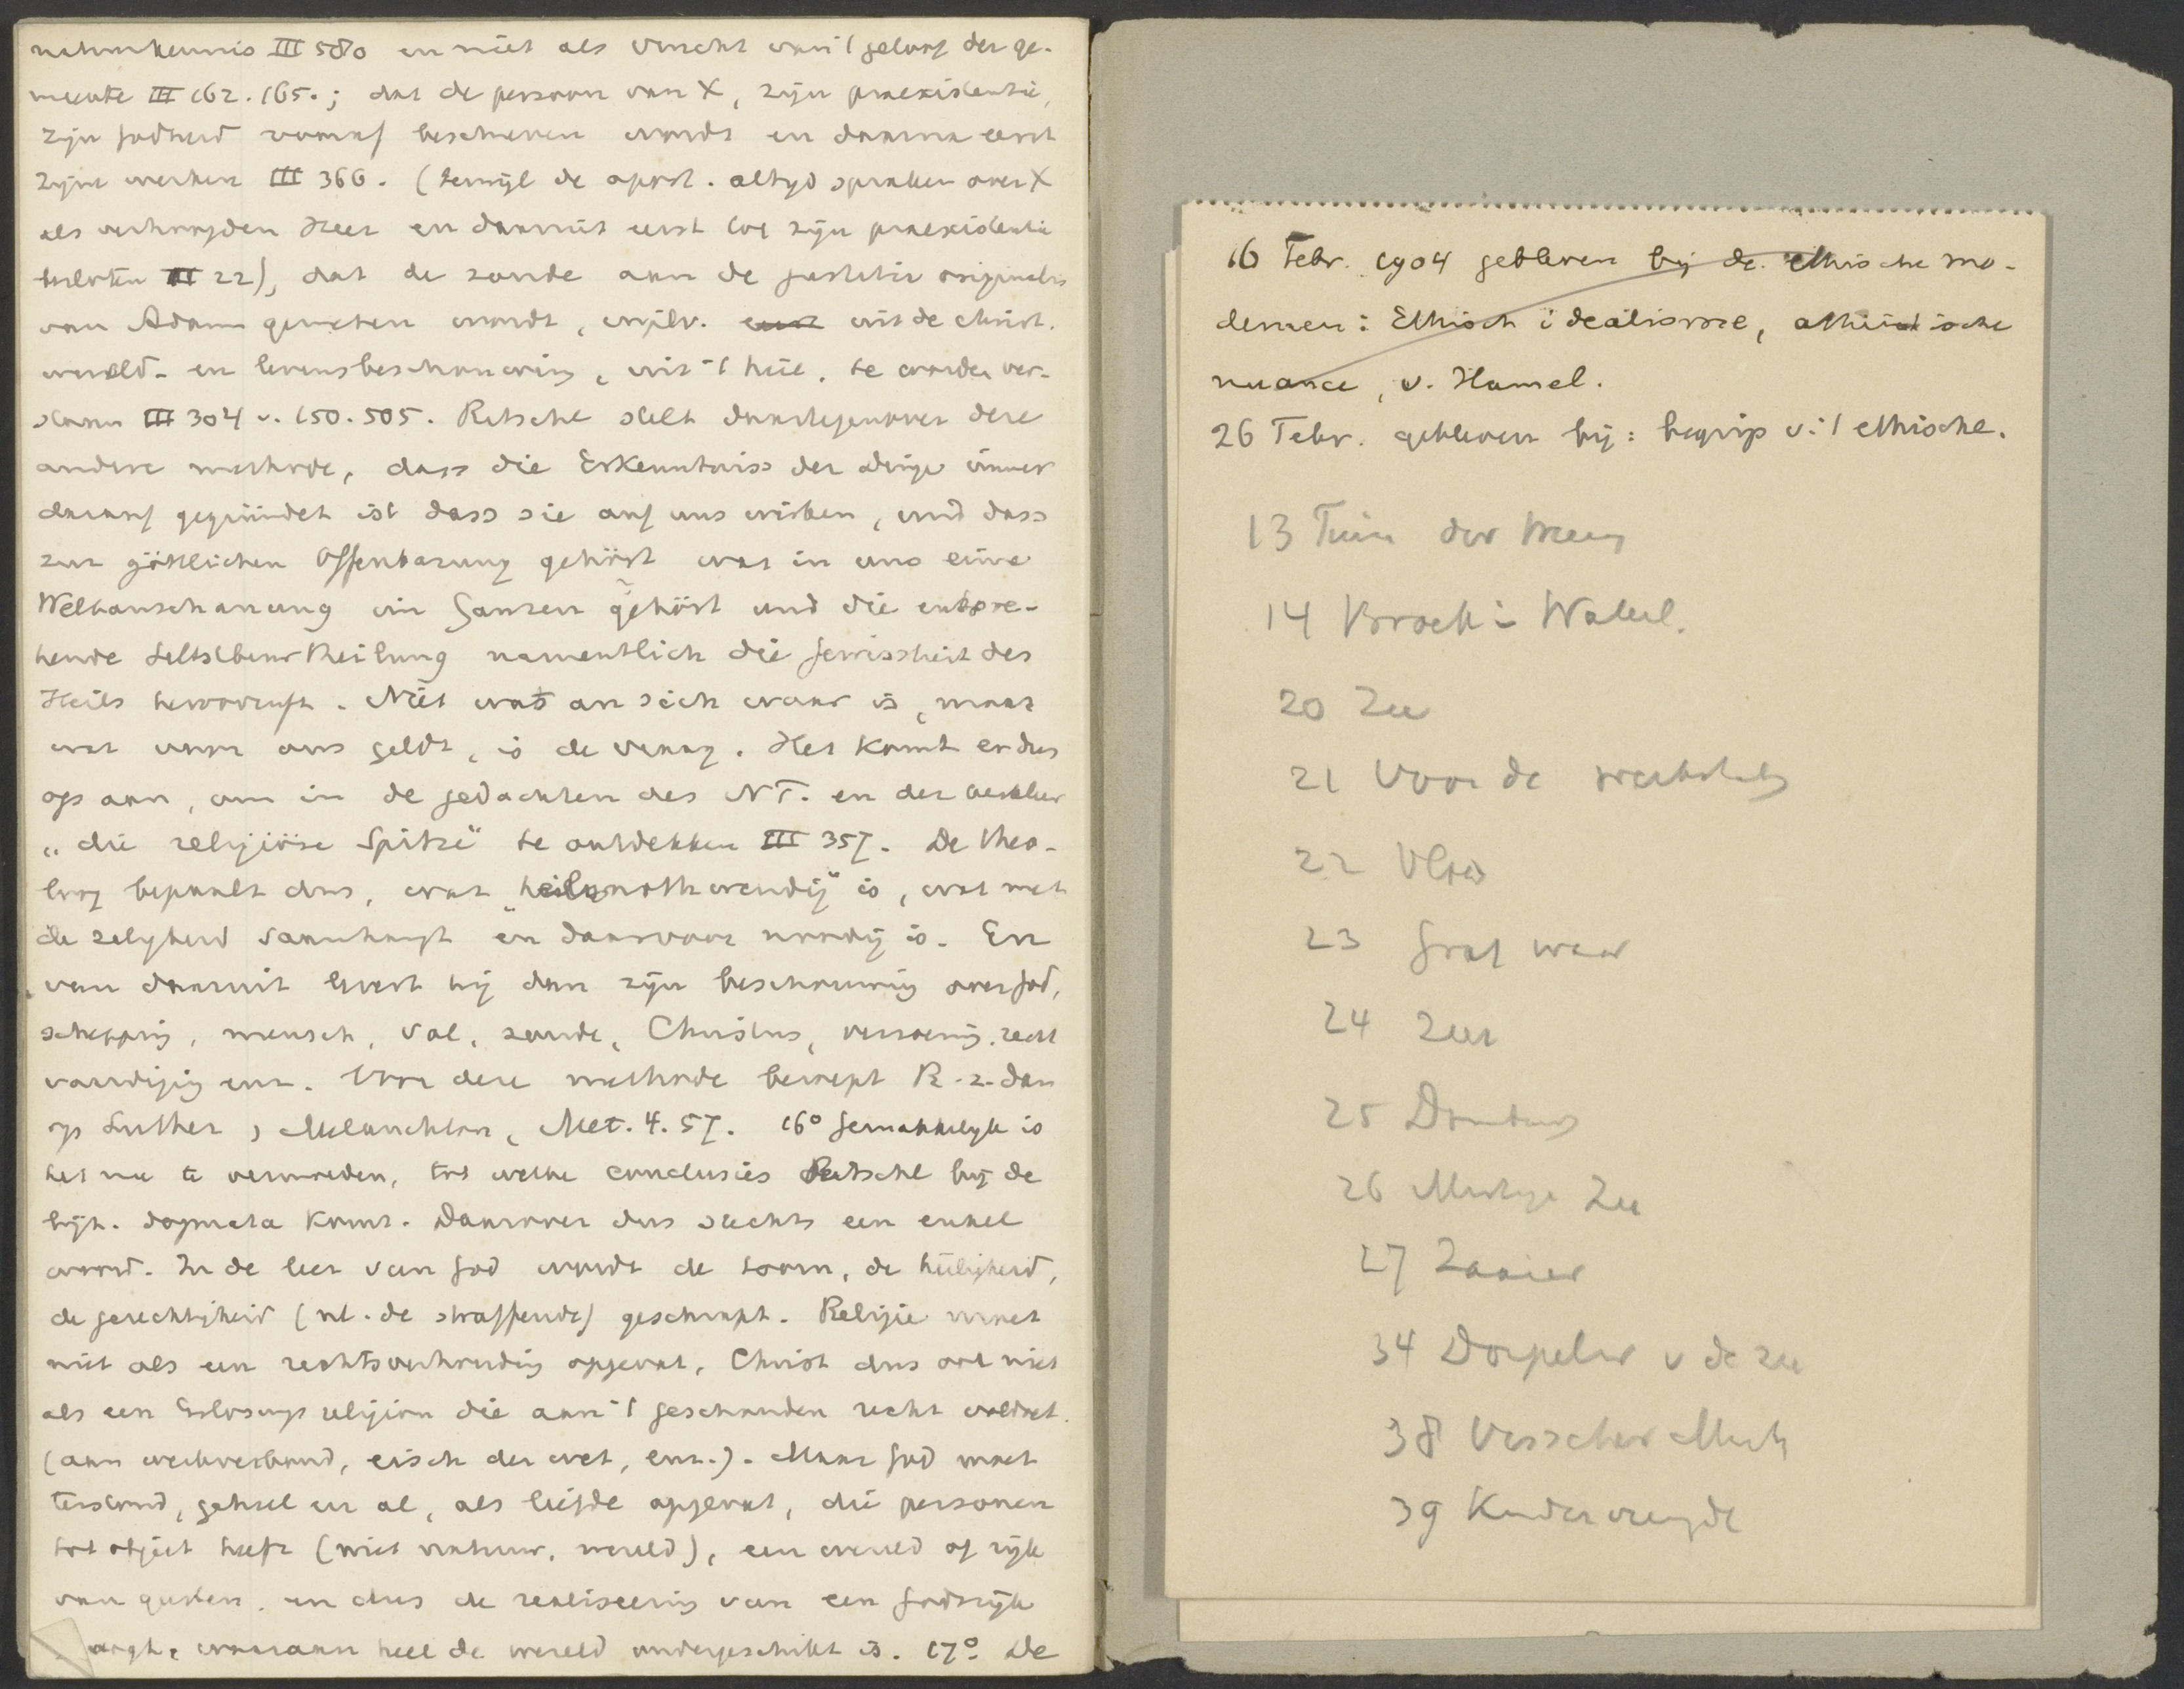 natuurkennis III 580 en niet als vrucht van 't geloof der ge-
meente III 162. 165.; dat de persoon van X, zijn praeexistentie,
zijn Godheid vooraf beschreven wordt en daarna eerst
zijne werken III 366. (terwijl de apost. altijd spraken over X
als verhoogden Heer en daaruit eerst tot zijn praeexistentie
besloten III 22), dat de zonde aan de justitia originalis
van Adam gemeten wordt, in plv. uit de christ.
wereld- en levensbeschouwing, uit 't heil, te worden ver-
staan III 304 v. 150. 505. Ritschl stelt daartegenover deze
andere methode, dass die Erkenntniss der Dinge immer
darauf gegründet ist dass sie auf uns wirken, und dass
zur göttlichen Offenbarung gehört was in uns eine
Weltanschauung im Ganzen gehört und die entspre-
hende Selbstbeurtheilung namentlich die Gewissheit des
Heils hervorruft. Niet wat an sich waar is, maar
wat voor ons geldt, is de vraag. Het komt er dus
op aan, om in de gedachten des NT. en der
„die religiöse Spitze" te ontdekken III 357. De theo-
loog bepaalt dus, wat „heilsnothwendig" is, wat met
de zaligheid samenhangt en daarvoor noodig is. En
van daaruit levert hij dan zijn beschouwing over God,
schepping, mensch, val, zonde, Christus, verzoening, recht
vaardiging enz. Voor deze methode beroept R. z. dan
op Luther, Melanchton, Met. 4. 57. 16° Gemakkelijk is
het nu te vermoeden, tot welke conclusies Ritschl bij de
bijz. dogmata komt. Daarover dus slechts een enkel
woord. In de leer van God wordt de toorn, de heiligheid,
de gerechtigheid (nl. de straffende) geschrapt. Religie moet
niet als een rechtsverhouding opgevat, Christ. dus ook niet
als een Erlösungsreligion die aan 't geschonden recht voldoet.
(aan werkverbond, eisch der wet, enz.). Maar God moet
terstond, geheel en al, als liefde opgevat, die personen
tot object heeft (niet natuur, wereld), een wereld of rijk
van geesten. en dus de realiseering van een Godsrijk
waaraan heel de wereld ondergeschikt is. 17° De
16 Febr. 1904 gebleven bij de ethische mo-
dernen: Ethisch idealisme, atheistische
nuance, v. Hamel.
26 Febr. gebleven bij: begrip v. 't ethische.
13 Tuin der
14 Broek i Waterl.
20 Zee
21 Voor de
22 Vlood
23
24 Zeer
25
26 Zee
27 Zaaier
34 Dorpeler v de zee
38 Visscher
39 Kindervreugde